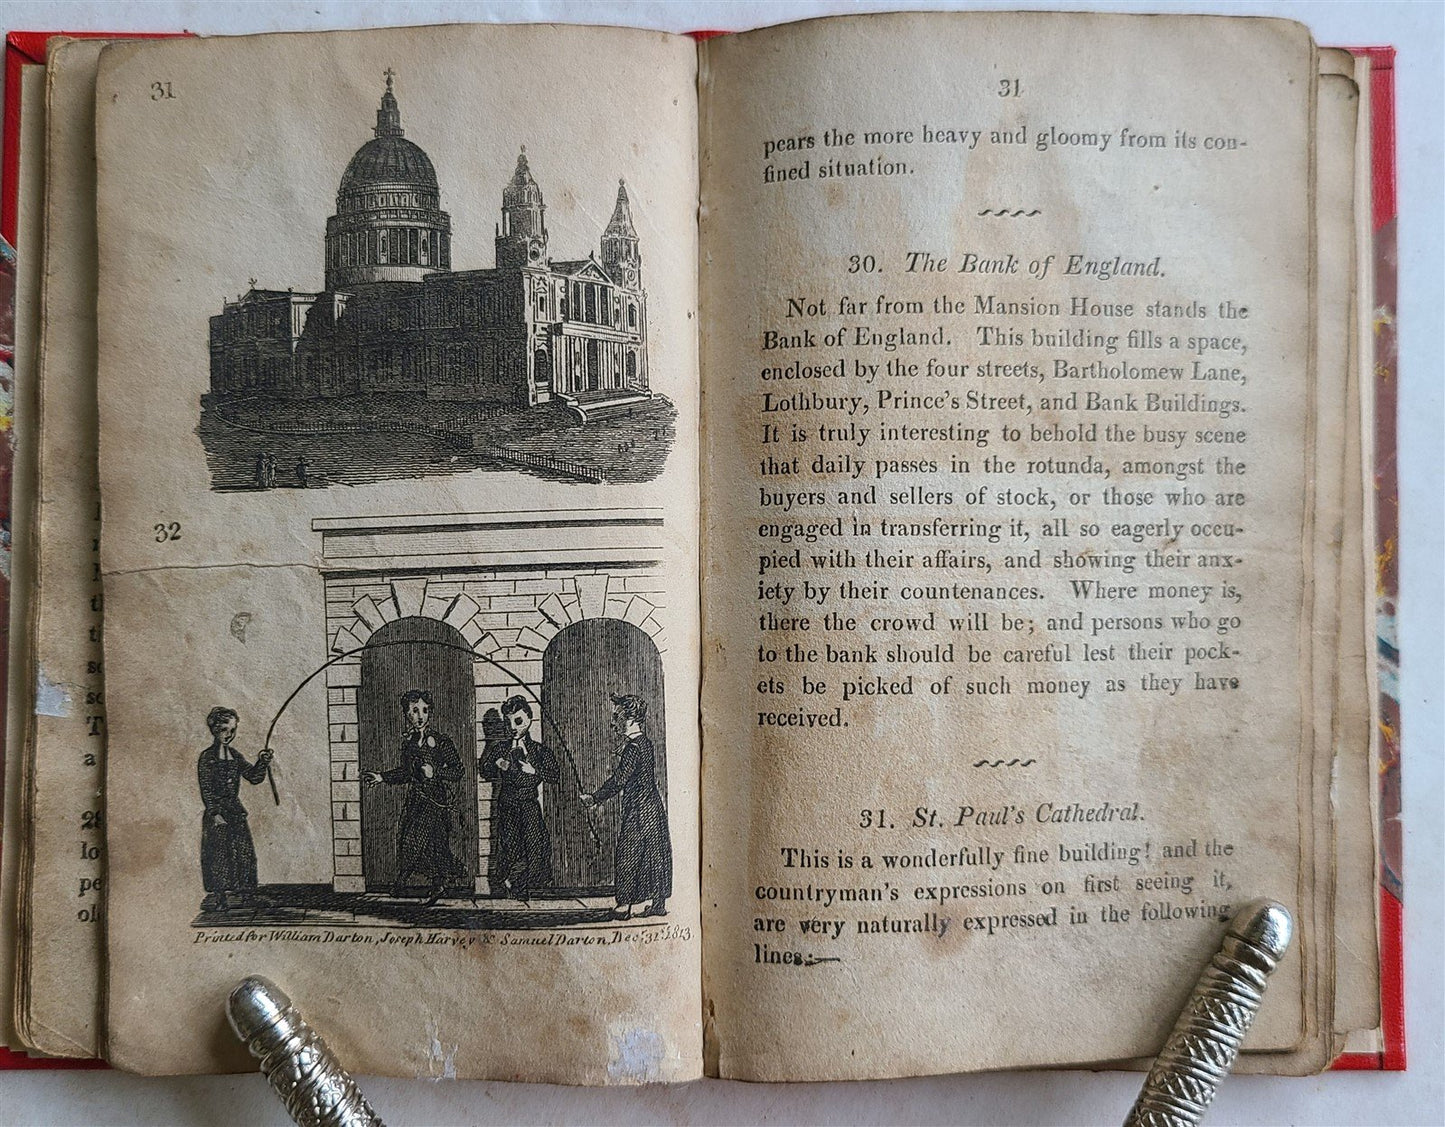 31
32
Printed for William Darton, Joseph Harvey & Samuel Darton, Dec.r 31.st 1813.
31
pears the more heavy and gloomy from its con-
fined situation.
30. The Bank of England.
Not far from the Mansion House stands the
Bank of England. This building fills a space,
enclosed by the four streets, Bartholomew Lane,
Lothbury, Prince's Street, and Bank Buildings.
It is truly interesting to behold the busy scene
that daily passes in the rotunda, amongst the
buyers and sellers of stock, or those who are
engaged in transferring it, all so eagerly occu-
pied with their affairs, and showing their anx-
iety by their countenances. Where money is,
there the crowd will be; and persons who go
to the bank should be careful lest their pock-
ets be picked of such money as they have
received.
31. St. Paul's Cathedral.
This is a wonderfully fine building! and the
countryman's expressions on first seeing it,
are very naturally expressed in the following
lines:—